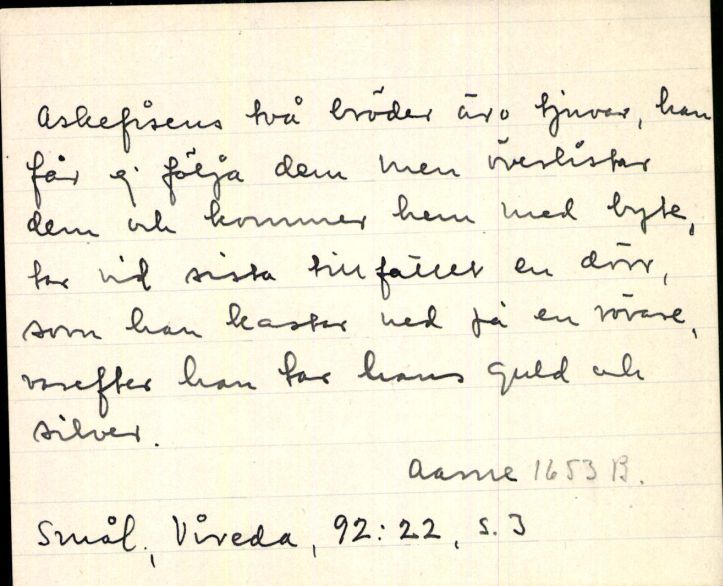 Askefisens två bröder äro tjuvar, han
får ej följa dem men överlistar
dem och kommer hem med byte,
tar vid sista tillfället en dörr,
som han kastar ned på en rövare,
varefter han tar hans guld och
silver.
Aarne 1653 B.
Smål., Vireda, 92:22, s. 3